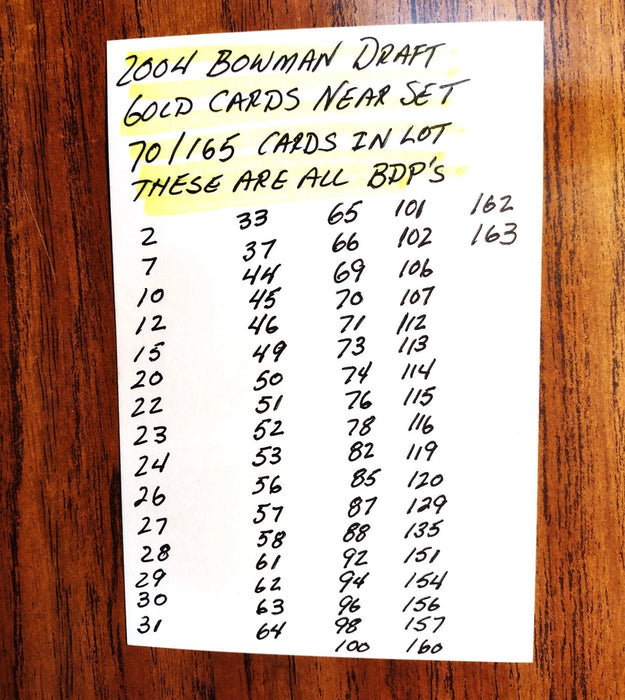 2004 BOWMAN DRAFT
GOLD CARDS NEAR SET
70/165 CARDS IN LOT
THESE ARE ALL BDP'S
2
7
10
12
15
20
22
23
24
26
27
28
29
30
31
33
37
44
45
46
49
50
51
52
53
56
57
58
61
62
63
64
65
66
69
70
71
73
74
76
78
82
85
87
88
92
94
96
98
100
101
102
106
107
112
113
114
115
116
119
120
129
135
151
154
156
157
160
162
163